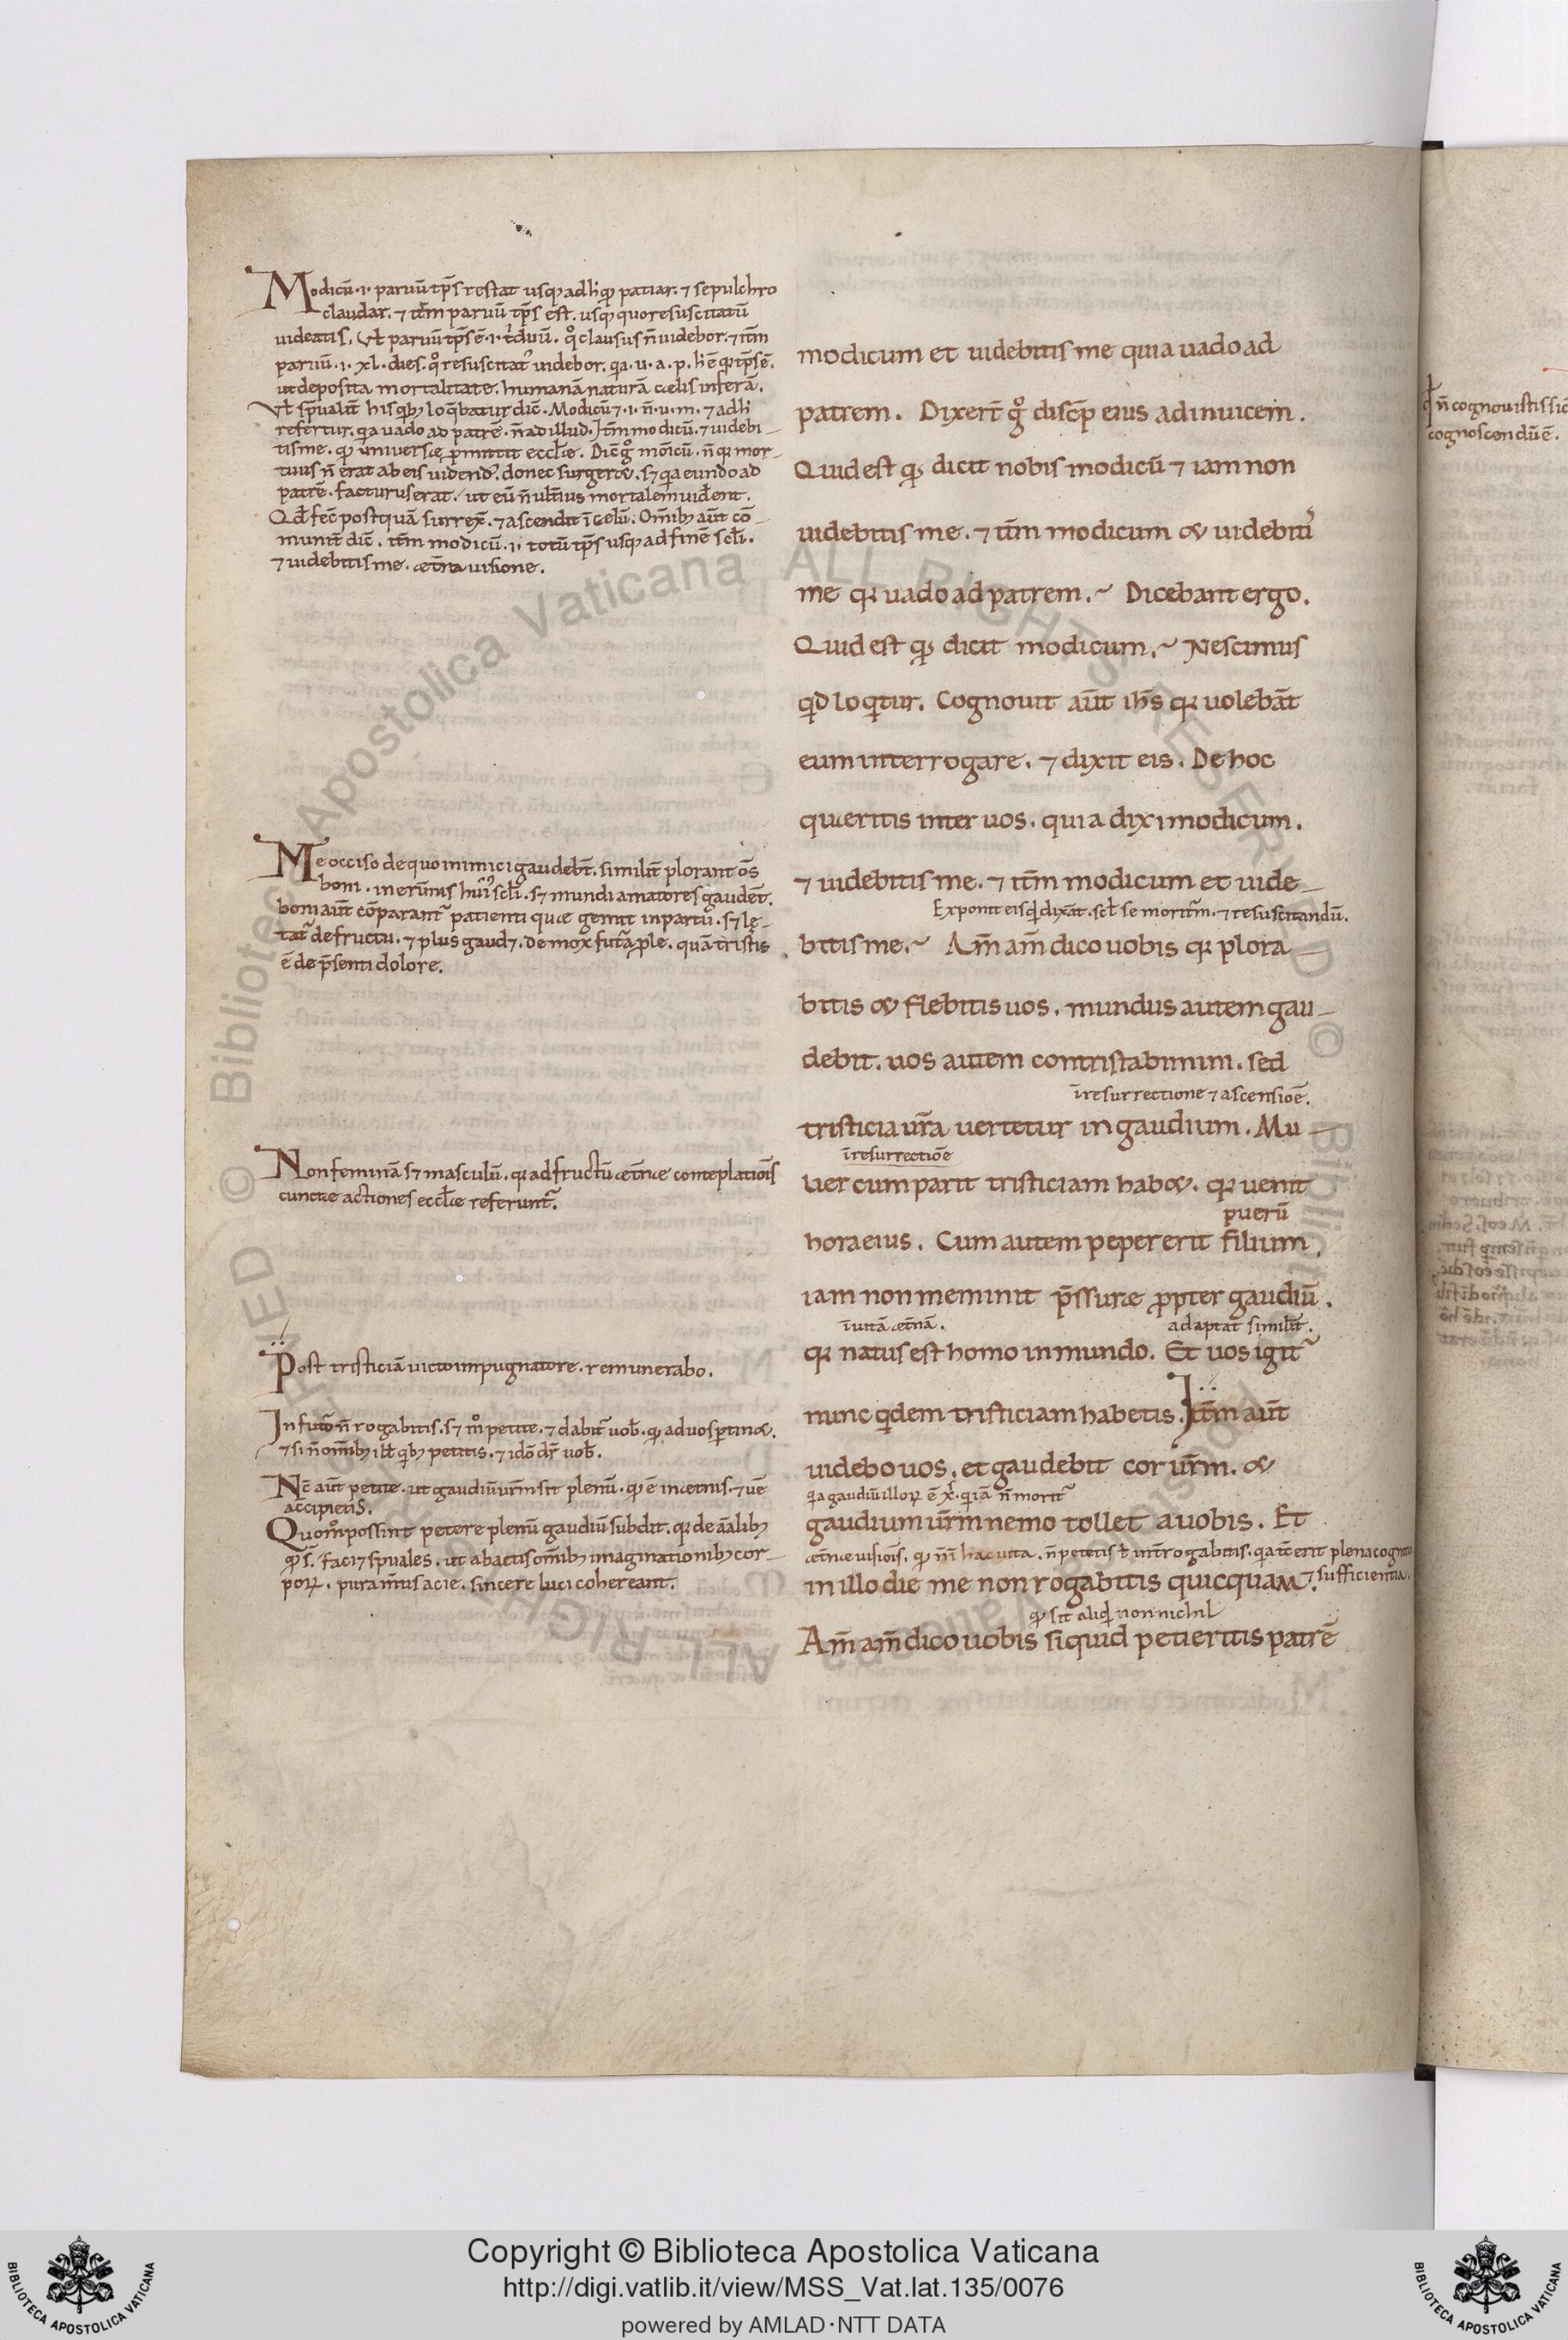 Modicū·i· paruū tp̄s restat usq; ad hq; patiar. ⁊ sepulchro
claudar. ⁊ itm̄ paruū tp̄s est. usq; quo resuscitatū
uideatis. Vł paruū tp̄s ē·i· tͥduū. qͦ clausus n̄ uidebor. ⁊ itm̄
paruū·i· xl. dies. qͦ resuscitat᷒ uidebor. qͥa. u. a. p. h̄ ē qꝛ tp̄s ē.
ut deposita mortalitate. humanā naturā cælis inferā.
Vł sp̄ualit̄ his qͥb; loq̄batur dic̄. Modicū ⁊ ·i· n̄. u. m. ⁊ adh
refertur. qͥa uado ad patrē. n̄ ad illud. Itm̄ modicū. ⁊ uidebi-
tis me. qđ uniuersæ ꝓmittit eccl̄æ. Dic̄ gͦ moīcū. n̄ qꝛ mor-
tuus n̄ erat ab eis uidend᷒. donec surgeret. sꝫ qͥa eundo ad
patrē. facturus erat. ut eū n̄ ult̄ius mortalem uiderent.
Qđ fec̄ postquā surrex̄. ⁊ ascendit ī celū. Omīb; aūt cō-
munit̄ dic̄. itm̄ modicū·i· totū tp̄s usq; ad finē scl̄i.
⁊ uidebitis me. æt̄na uisione.
Me occiso de quo inimici gaudebt̄. similit̄ plorant oīs
boni. in erūnis hui᷒ scl̄i. sꝫ mundi amatores gaudēt.
boni aūt cōparant᷑ patienti quæ gemit in partu. sꝫ lę-
tat᷑ de fructu. ⁊ plus gaudꝫ. de mox futͣa ꝓle. quā tristis
ē de p̄senti dolore.
Non feminā sꝫ masculū. qꝛ ad fructū æt̄næ conteplatiōis
cunctæ actiones eccl̄æ referunt᷑.
Post tristiciā uicto impugnatore. remunerabo.
In futͦo n̄ rogabitis. sꝫ mͦ petite. ⁊ dabit᷑ uob̄. qđ ad uos ꝑtinet.
⁊ si n̄ omīb; illͥ qͥb; petitis. ⁊ idō dr̄ uob̄.
Nc̄ aūt petite. ut gaudiū urm̄ sit plenū. qđ ē in æt̄nis. ⁊ uē
accipietis.
Quomͦ possint petere plenū gaudiū subdit. qꝛ de aīalib;
qđ s̄. faciꝫ sp̄uales. ut abactis omīb; imaginationib; cor-
porꝝ. pura mīs acie. sincere luci cohereant.
modicum et uidebitis me quia uado ad
patrem. Dixert̄ gͦ discip̄ eius ad inuicem.
Quid est qđ dicit nobis modicū ⁊ iam non
uidebitis me. ⁊ itm̄ modicum et uidebiti᷒
me qꝛ uado ad patrem.~ Dicebant ergo.
Quid est qđ dicit modicum.~ Nescimus
qͥd loqͥtur. Cognouit aūt ih̄s qꝛ uolebāt
eum interrogare. ⁊ dixit eis. De hoc
quæritis inter uos. quia dixi modicum.
⁊ uidebitis me. ⁊ itm̄ modicum et uide-
Exponit eis qđ dixāt. scl̄ se moritur̄. ⁊ resuscitandū.
bitis me.~ Am̄ am̄ dico uobis qꝛ plora-
bitis et flebitis uos. mundus autem gau-
debit. uos autem contristabimini. sed
ī resurrectione ⁊ ascensiōe.
tristicia ur̄a uertetur in gaudium. Mu-
ī resurrectiōe
lier cum parit tristiciam habet. qꝛ uenit
puerū
hora eius. Cum autem pepererit filium.
iam non meminit p̄ssuræ ꝓpter gaudiū.
ī uitā æt̄nā. adaptat similit̄.
qꝛ natus est homo in mundo. Et uos igit᷑
nunc qͥdem tristiciam habetis. Itm̄ aūt
uidebo uos, et gaudebit cor ur̄m. et
qͥa gaudiū illorꝝ ē xp̄. qͥ iā n̄ morit᷑
gaudium ur̄m nemo tollet a uobis. Et
æt̄næ uisiōis. qđ n̄ī hac uita. n̄ petetis ł int̄rogabitis. qͥa t̄c erit plena cognitio
in illo die me non rogabitis quicquam. ⁊ sufficientia.
qđ sit aliqͥd non nichil
Am̄ am̄ dico uobis siquid petieritis patrē
qđ n̄ cognouistis sic
cognoscendū ē.
© Biblioteca Apostolica Vaticana ALL RIGHTS RESERVED
Copyright © Biblioteca Apostolica Vaticana
http://digi.vatlib.it/view/MSS_Vat.lat.135/0076
powered by AMLAD·NTT DATA
BIBLIOTECA APOSTOLICA VATICANA
BIBLIOTECA APOSTOLICA VATICANA